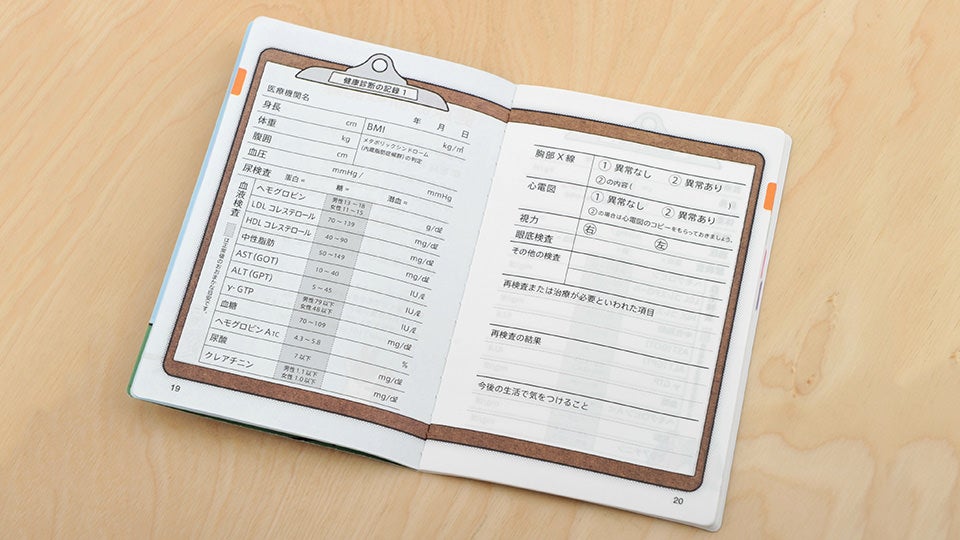 健康診断の記録 1
医療機関名 年 月 日
身長 cm BMI kg/㎡
体重 kg メタボリックシンドローム
(内臓脂肪症候群)の判定
腹囲 cm
血圧 mmHg / mmHg
尿検査 蛋白= 糖= 潜血=
血液検査
は正常値のおおまかな目安です。
ヘモグロビン 男性13~18 g/dℓ
女性11~15
LDL コレステロール 70~139 mg/dℓ
HDL コレステロール 40~90 mg/dℓ
中性脂肪 50~149 mg/dℓ
AST(GOT) 10~40 IU/ℓ
ALT(GPT) 5~45 IU/ℓ
γ-GTP 男性79以下 IU/ℓ
女性48以下
血糖 70~109 mg/dℓ
ヘモグロビン A1C 4.3~5.8 %
尿酸 7以下 mg/dℓ
クレアチニン 男性1.1以下 mg/dℓ
女性1.0以下
19
胸部X線 ① 異常なし ② 異常あり
②の内容( )
心電図 ① 異常なし ② 異常あり
②の場合は心電図のコピーをもらっておきましょう。
視力 右 左
眼底検査
その他の検査
再検査または治療が必要といわれた項目
再検査の結果
今後の生活で気をつけること
20